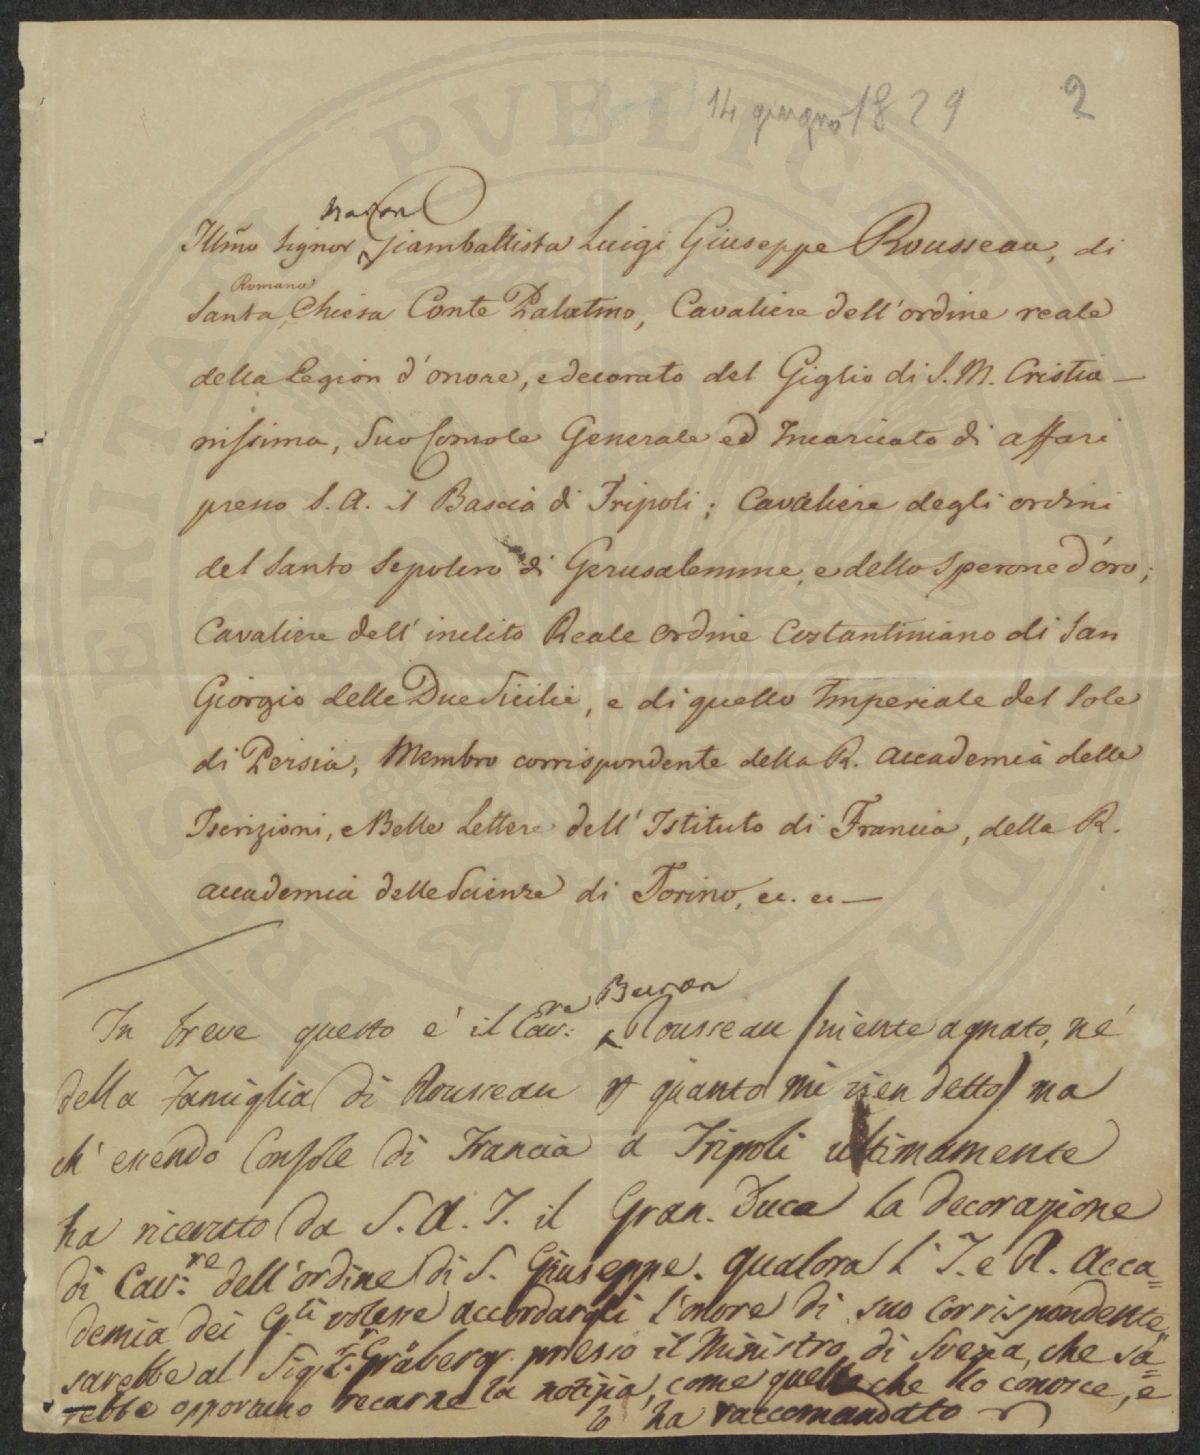 14 giugno 1829
2
Baron
Illmo Signor Giambattista Luigi Giuseppe Rousseau, di
Romana
Santa Chiesa Conte Palatino, Cavaliere dell'ordine reale
della Legion d'onore, e decorato del Giglio di S. M. Cristia-
nissima, Suo Console Generale ed Incaricato di affari
presso S. A. il Bascià di Tripoli; Cavaliere degli ordini
del Santo Sepolcro di Gerusalemme, e dello Sperone d'oro;
Cavaliere dell' inclito Reale ordine Costantiniano di San
Giorgio delle Due Sicilie, e di quello Imperiale del Sole
di Persia, Membro corrispondente della R. Accademia delle
Iscrizioni, e Belle Lettere dell' Istituto di Francia, della R.
Accademia delle Scienze di Torino, ec. ec. —
Baron
In breve questo è il Cav:re Rousseau /niente agnato, nè
della Famiglia di Rousseau quanto mi vien detto/ ma
ch' essendo Console di Francia a Tripoli ultimamente
ha ricevuto da S. A. I. il Gran. Duca la decorazione
di Cav:re dell'ordine di S. Giuseppe. Qualora l' I. e R. Acca=
demia dei G.li volesse accordargli l'onore di suo corrispondente,
sarebbe al Sig:r Gråberg presso il Ministro di Svezia, che sa=
rebbe opportuno recarne la notizia, come quello che lo conosce, e
lo ha raccomandato
PROSPERITATI PVBLICAE